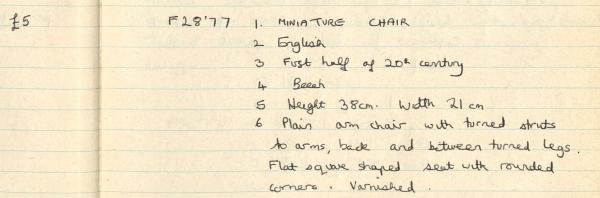 £5 F28'77 1. MINIATURE CHAIR
2 English
3 First half of 20th century
4 Beech
5 Height 38cm. Width 21cm
6 Plain arm chair with turned struts
to arms, back and between turned legs.
Flat square shaped seat with rounded
corners. Varnished.